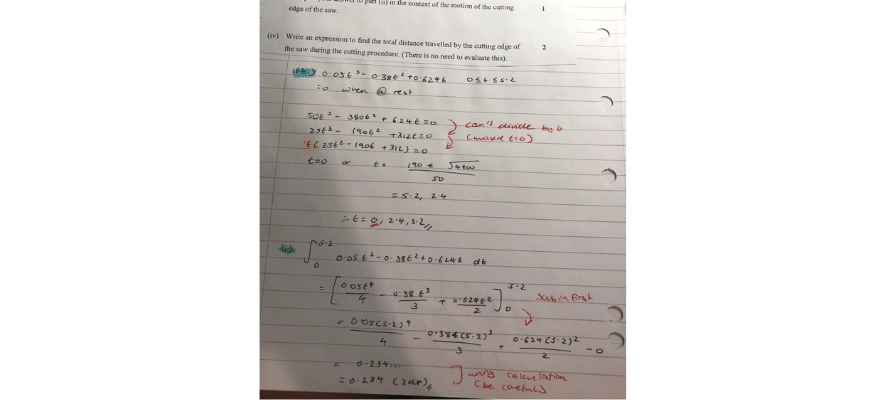 part (ii) in the context of the motion of the cutting
edge of the saw.
1
(iv) Write an expression to find the total distance travelled by the cutting edge of
2
the saw during the cutting procedure. (There is no need to evaluate this).
0.05t³ - 0.38t² + 0.624t 0≤t≤5.2
=0 when @ rest
50t³ - 380t² + 624t = 0
25t³ - 190t² + 312t = 0
can't divide by t
(missed t=0)
t(25t² - 190t + 312) = 0
t=0 or t = 190 ± √4900
50
= 5.2, 2.4
∴ t = 0, 2.4, 5.2
∫ 5.2 0 0.05t³ - 0.38t² + 0.624t dt
= [0.05t⁴/4 - 0.38t³/3 + 0.624t²/2] 5.2 0
Sub in first
= 0.05(5.2)⁴/4 - 0.384(5.2)³/3 + 0.624(5.2)²/2 - 0
= 0.234...
= 0.234 (3dp)
wrong calculation
(be careful)